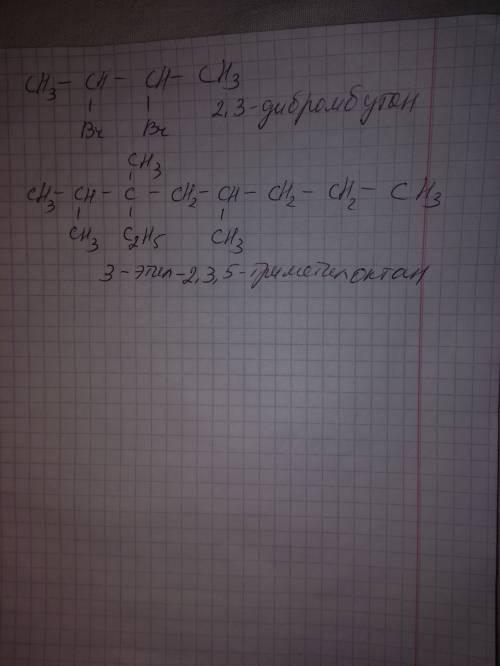 CH3 - CH - CH - CH3
Br Br
2,3-дибромбутан
CH3
CH3 - CH - C - CH2 - CH - CH2 - CH2 - CH3
CH3 C2H5 CH3
3-этил-2,3,5-триметилоктан